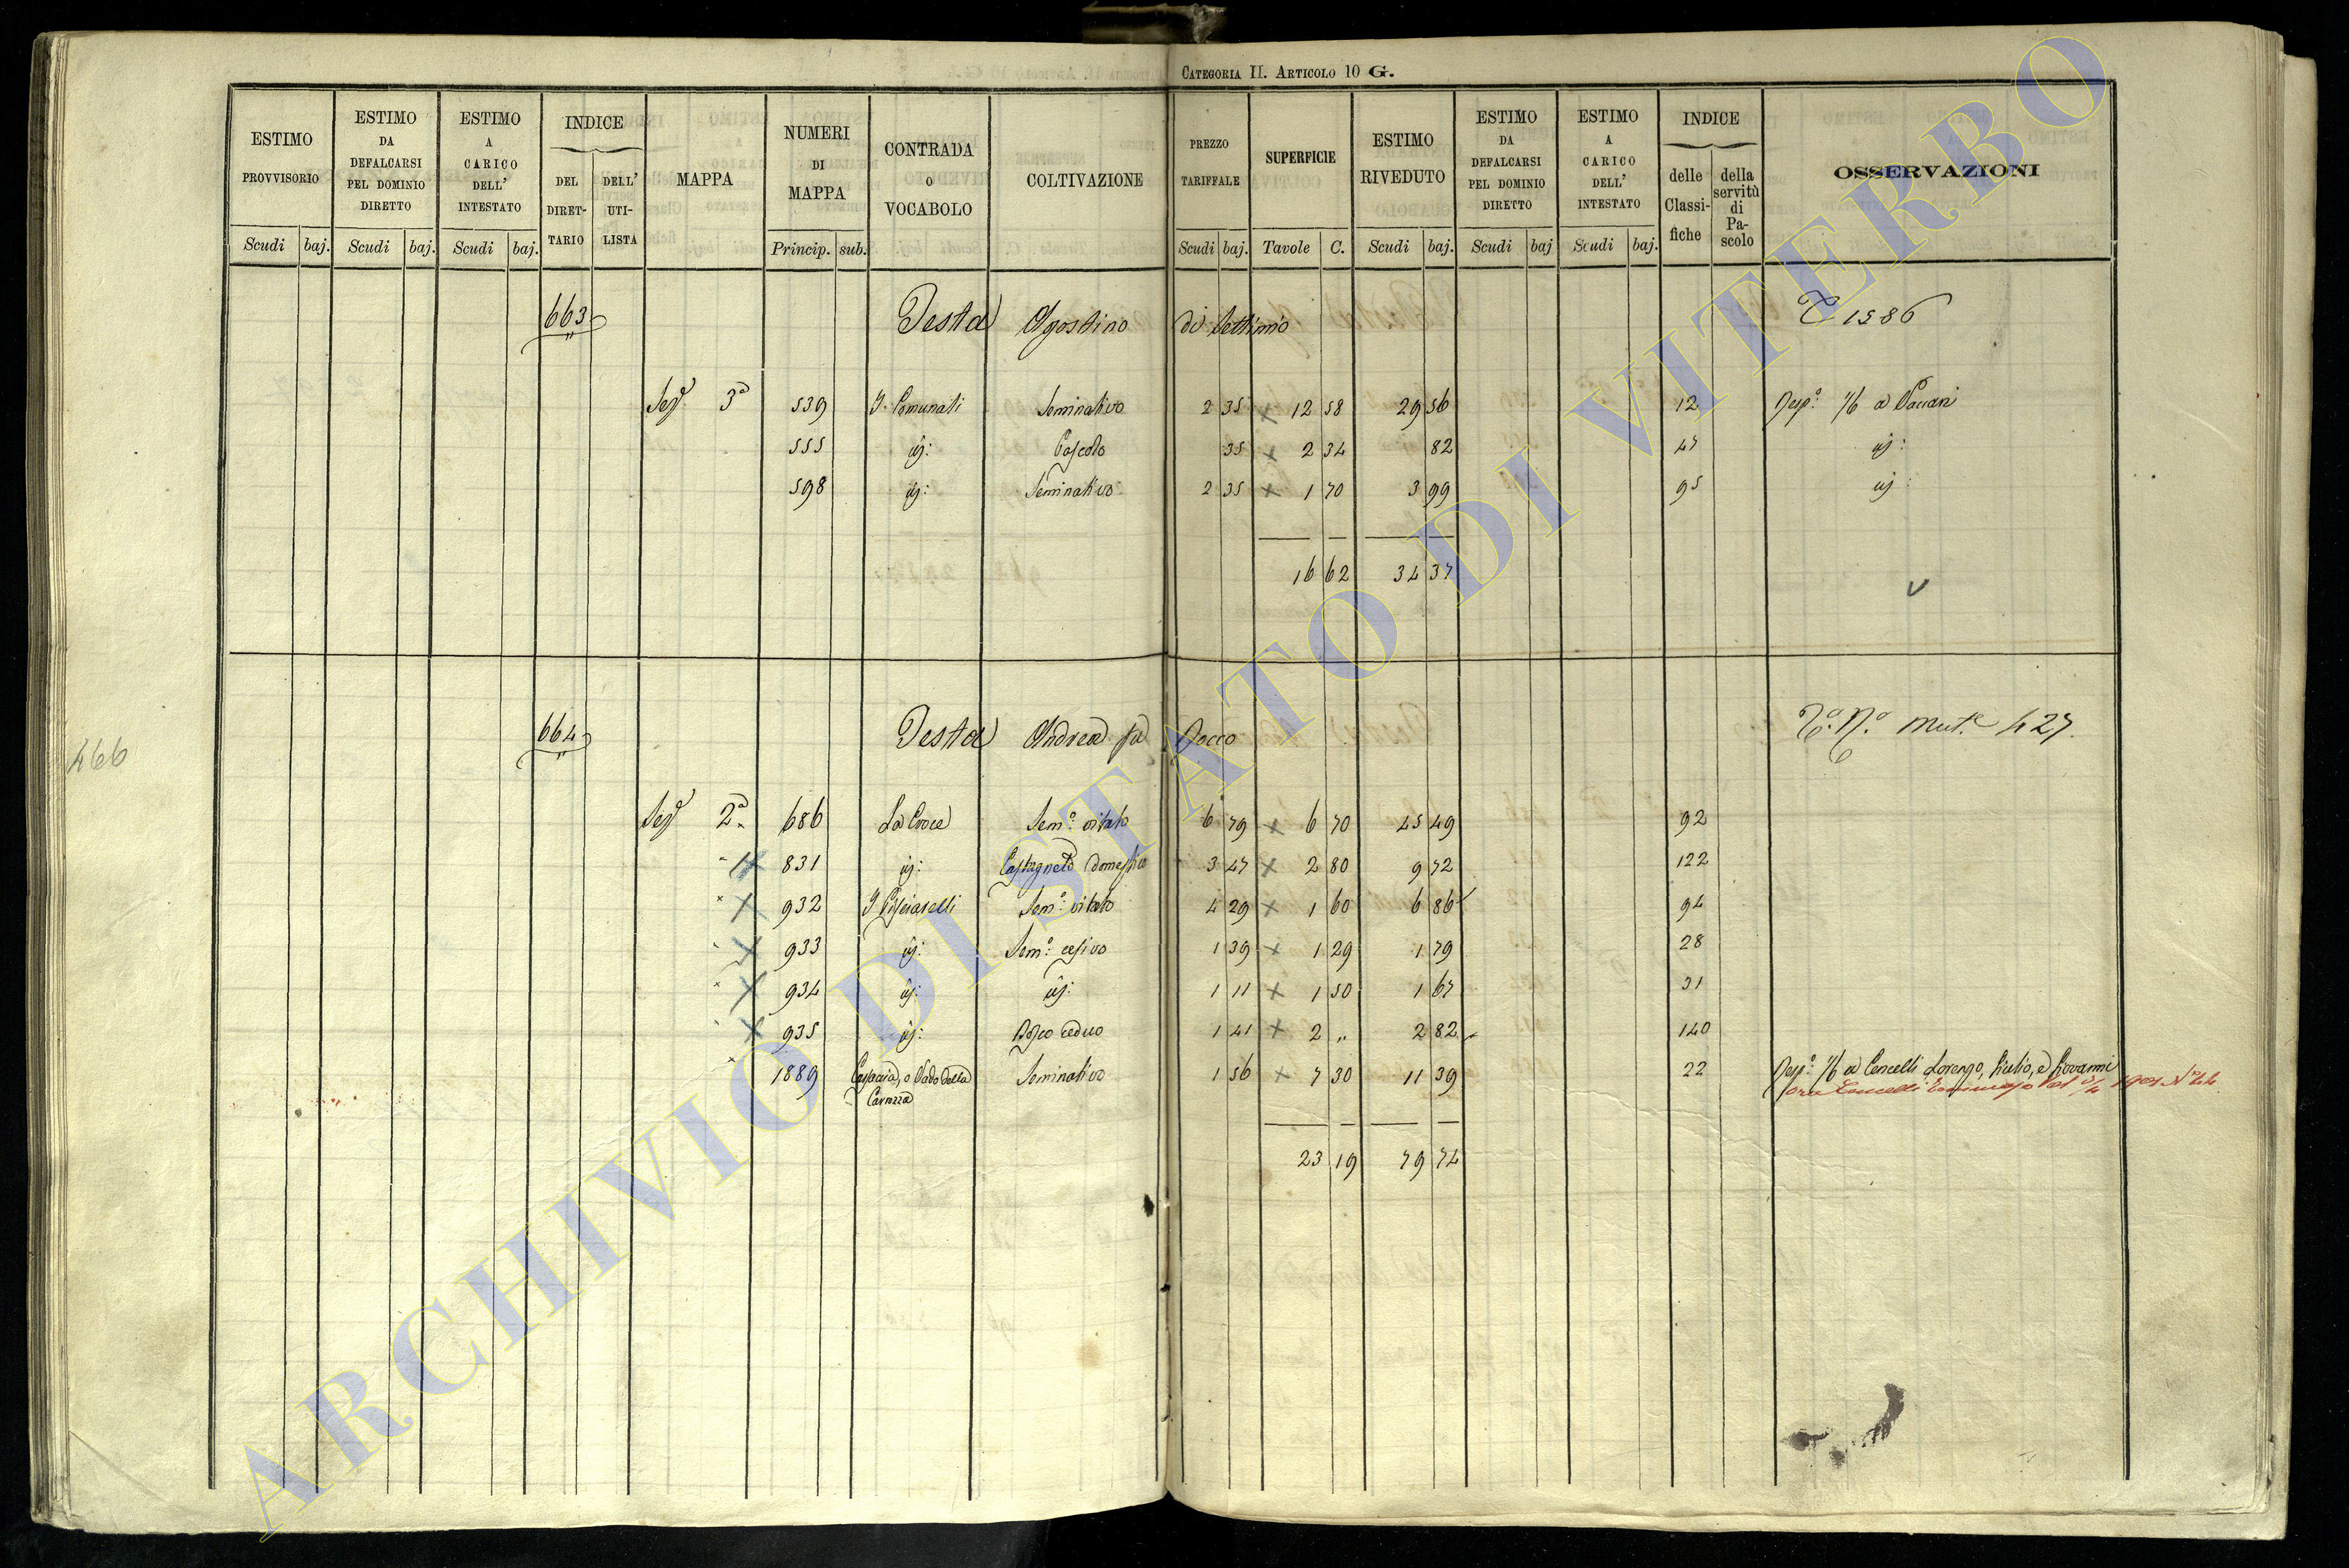 CATEGORIA II. ARTICOLO 10 G.
ESTIMO PROVVISORIO | ESTIMO DA DEFALCARSI PEL DOMINIO DIRETTO | ESTIMO A CARICO DELL' INTESTATO | INDICE DEL DIRET-TARIO | DELL' UTI-LISTA | MAPPA | NUMERI DI MAPPA | CONTRADA O VOCABOLO | COLTIVAZIONE | PREZZO TARIFFALE | SUPERFICIE | ESTIMO RIVEDUTO | ESTIMO DA DEFALCARSI PEL DOMINIO DIRETTO | ESTIMO A CARICO DELL' INTESTATO | INDICE delle Classi-fiche | della servitù di Pa-scolo | OSSERVAZIONI
Scudi baj. Scudi baj. Scudi baj. Princip. sub. Scudi baj. Tavole C. Scudi baj. Scudi baj Scudi baj.
663 Testa Agostino di Settimio T 1586
Sez. 3a 539 I Comunali Seminativo 2 35 x 12 58 29 56 12 Resp. 1/6 a
555 id: Pascolo 35 x 2 34 82 47 id:
598 id: Seminativo 2 35 x 1 70 3 99 95 id:
16 62 34 37
V
664 Testa Andrea fu Rocco Mut.e 427
466
Sez. 2a 686 La Croce Sem.o vitato 6 79 x 6 70 45 49 92
x 831 id: Castagneto domestico 3 47 x 2 80 9 72 122
x 932 I Pisciarelli Sem.o vitato 4 29 x 1 60 6 86 94
x 933 id: Sem.o cesivo 1 39 x 1 29 1 79 28
x 934 id: id: 1 11 x 1 50 1 67 31
x 935 id: Bosco ceduo 1 41 x 2 „ 2 82 140
1889 o Vado della Seminativo 1 56 x 7 30 11 39 22 Resp. 1/6 a Cencelli Lorenzo, Giulio, e Giovanni
Carozza
ora Cencelli Tommaso
23 19 79 74
ARCHIVIO DI STATO DI VITERBO